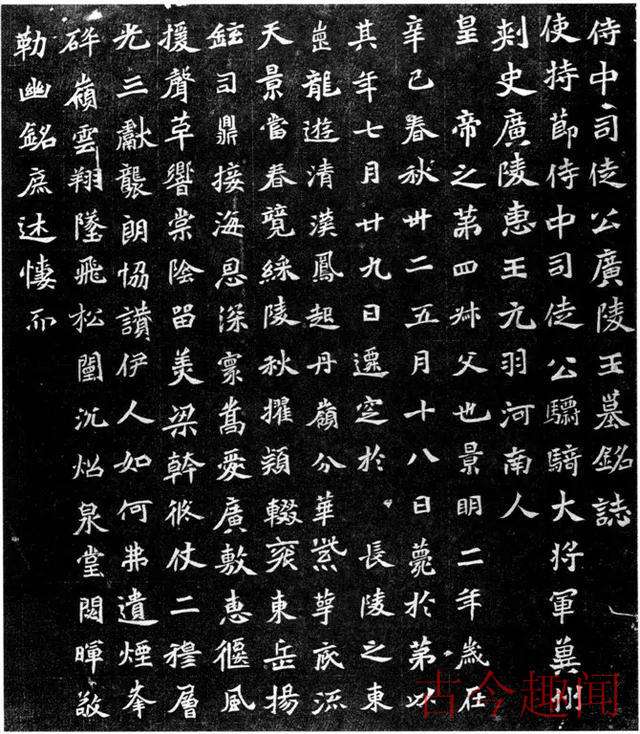 侍中司徒公廣陵王墓銘誌
使持節侍中司徒公驃騎大將軍冀州
刺史廣陵惠王元羽河南人
皇 帝之第四叔父也景明二年歲在
辛巳春秋卅二五月十八日薨於第以
其年七月廿九日遷窆於 長陵之東
崗龍遊清漢鳳起丹嶺分華紫萼底流
天景當春覽綵陵秋擢穎輟袞東岳揚
鉉司鼎接海恩深寰嵩愛廣敷惠偃風
援聲草響棠陰留美梁幹絛仗二穆層
光三獻襲朗協讚伊人如何弗遺煙峯
碎嶺雲翔墜飛松闈沉炤泉堂閟暉敬
勒幽銘庶述悽而
古今趣闻